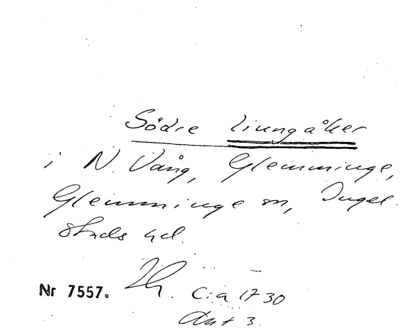 Södre liungåker
i N. Vång, Glemminge,
Glemminge sn, Ingel.
stads hd.
Nr 7557. Lh. c:a 1730
Akt 3.